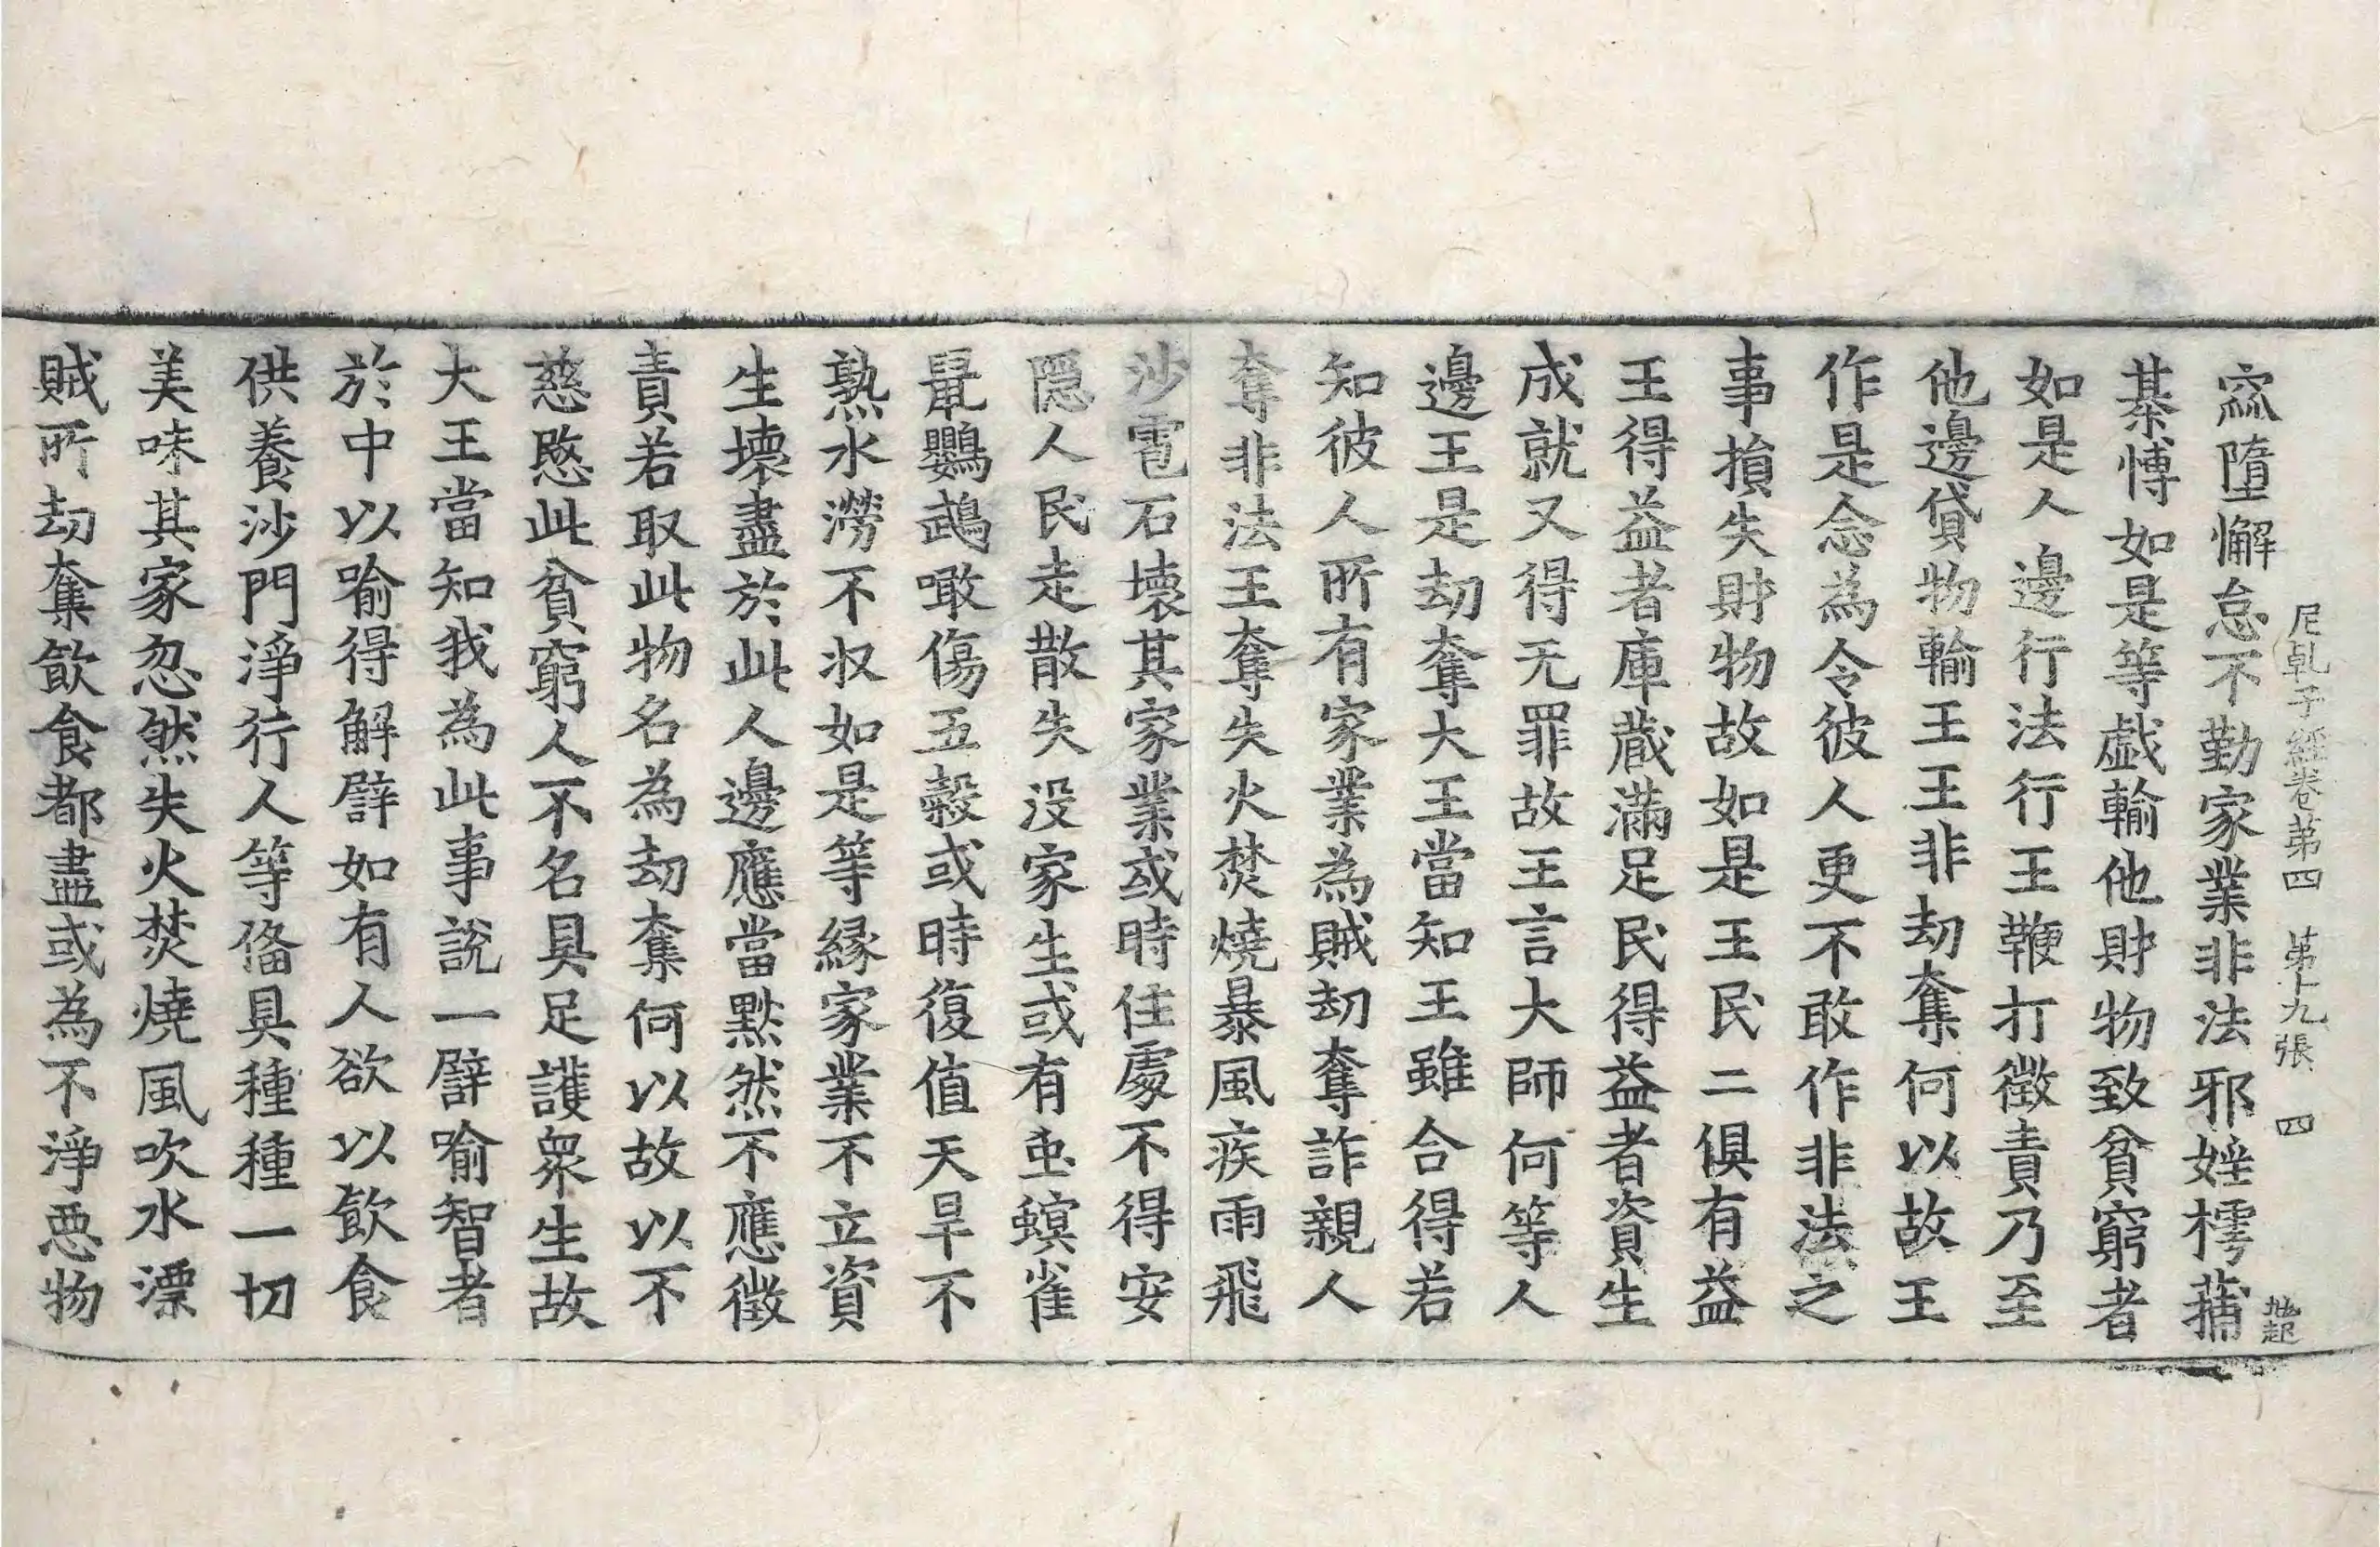 尼乹子經卷苐四　苐十九張　四
窳墮懈怠不勤家業非法邪婬樗蒱
棊愽如是等戯輸他財物致貧窮者
如是人邊行法行王鞭打徵責乃至
他邊貸物輸王王非劫奪何以故王
作是念為令彼人更不敢作非法之
事損失財物故如是王民二俱有益
王得益者庫蔵滿足民得益者資生
成就又得无罪故王言大師何等人
邊王是劫奪大王當知王雖合得若
知彼人所有家業為賊劫奪詐親人
奪非法王奪失火焚燒暴風疾雨飛
沙雹石壞其家業或時住處不得安
隠人民走散失没家生或有䖝螟雀
鼠鸚鵡噉傷五穀或時復值天旱不
熟水澇不収如是等緣家業不立資
生壞盡於此人邊應當黙然不應徵
責若取此物名為劫奪何以故以不
慈愍此貧窮人不名具足護衆生故
大王當知我為此事說一譬喻智者
於中以喻得解譬如有人欲以飲食
供養沙門淨行人等俻具種種一切
美味其家忽然失火焚燒風吹水漂
賊所劫奪飲食都盡或為不淨惡物